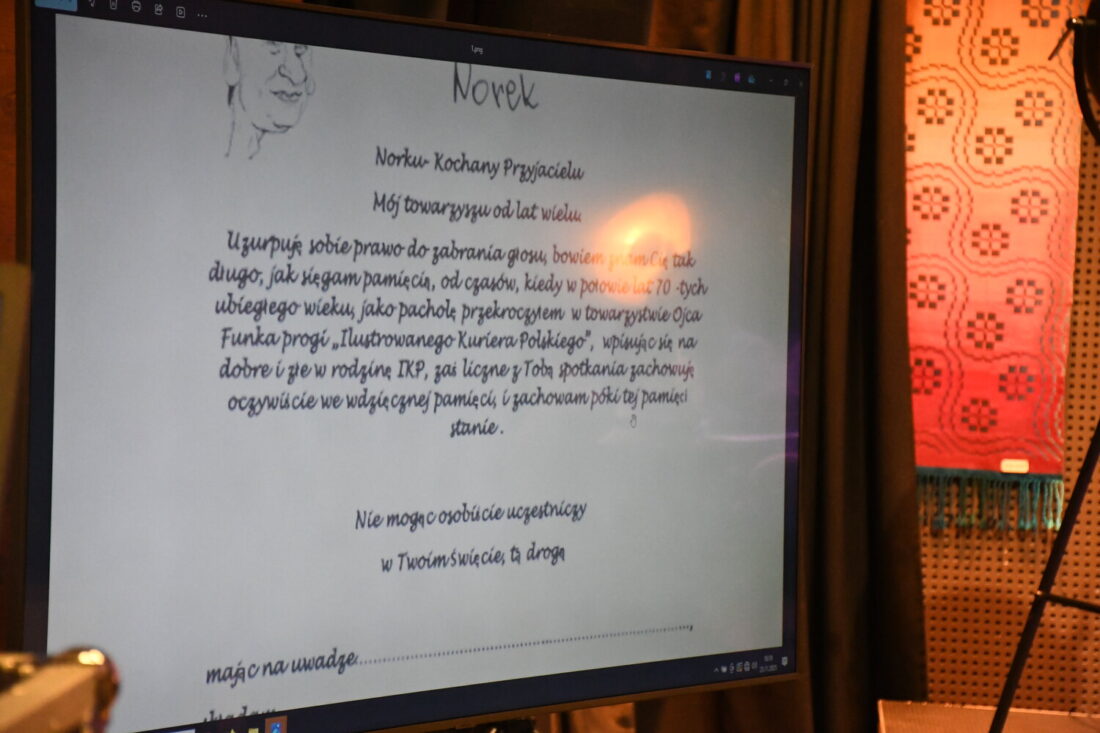 1.png
Norek
Norku- Kochany Przyjacielu
Mój towarzyszu od lat wielu
Uzurpuję sobie prawo do zabrania głosu, bowiem znam Cię tak
długo, jak sięgam pamięcią, od czasów, kiedy w połowie lat 70 -tych
ubiegłego wieku, jako pacholę przekroczyłem w towarzystwie Ojca
Funka progi „Ilustrowanego Kuriera Polskiego”, wpisując się na
dobre i złe w rodzinę IKP, zaś liczne z Tobą spotkania zachowuję
oczywiście we wdzięcznej pamięci, i zachowam póki tej pamięci
stanie.
Nie mogąc osobiście uczestniczy
w Twoim święcie, tą drogą
mając na uwadze................................................................,